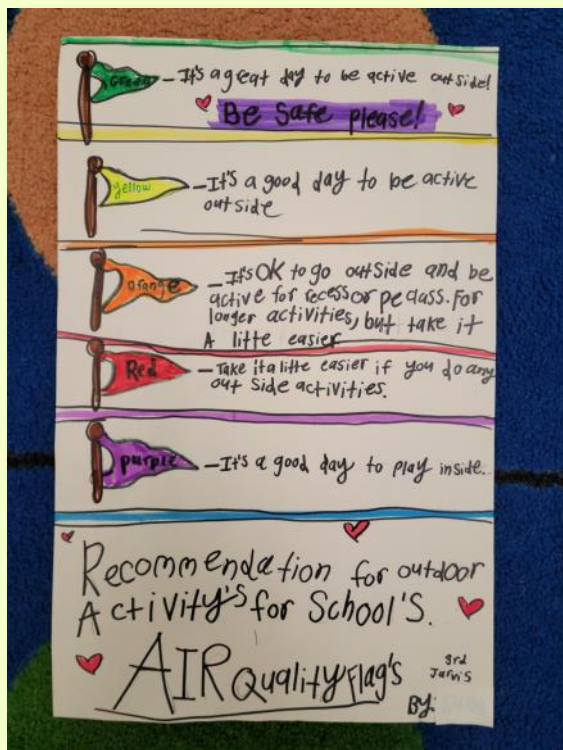 Green - It's a great day to be active outside!
Be Safe please!
yellow - It's a good day to be active
outside
orange - It's OK to go outside and be
active for recess or pe class. For
longer activities, but take it
A litte easier
Red - Take it a litte easier if you do any
out side activities.
purple - It's a good day to play inside.
Recommendation for outdoor
Activity's for School's.
AIR Quality Flag's
3rd
Jarvis
By: